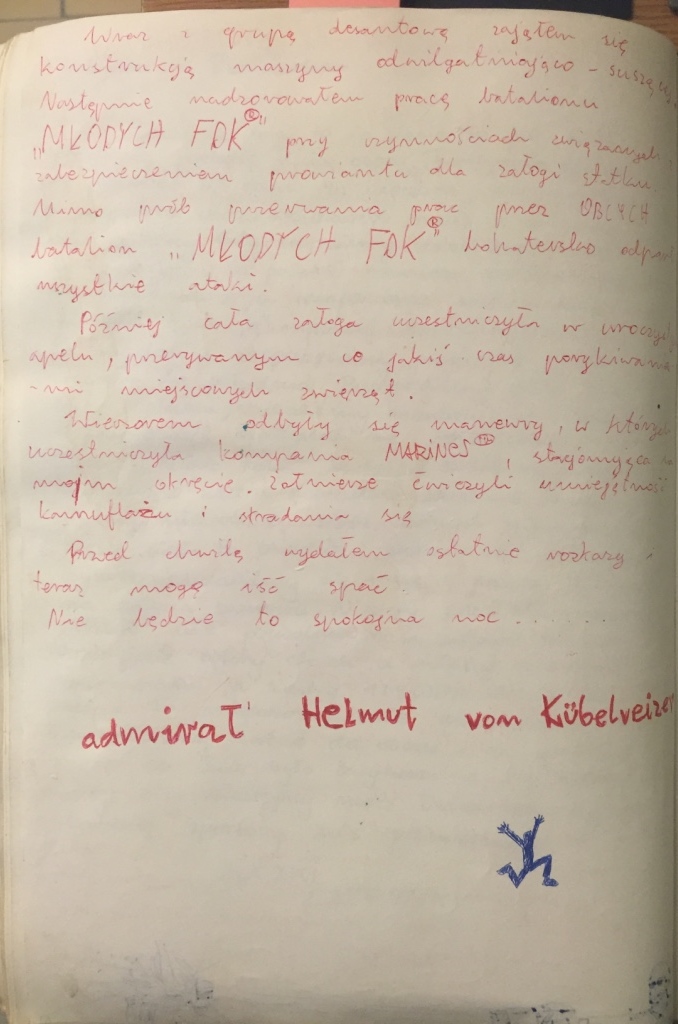 Wraz z grupą desantową zająłem się
konstrukcją maszyny odwilgatniająco - suszącej.
Następnie nadzorowałem pracę batalionu
„MŁODYCH FDK®" przy czynnościach związanych z
zabezpieczeniem prowiantu dla załogi statku.
Mimo prób przerwania prac przez OBCYCH
batalion „MŁODYCH FDK®" bohatersko odparł
wszystkie ataki.
Później cała załoga uczestniczyła w
apelu, przerywanym co jakiś czas porykiwania
-mi miejscowych zwierząt.
Wieczorem odbyły się manewry, w których
uczestniczyła kompania MARINES™, stacjonująca na
mojm okręcie. Żołnierze ćwiczyli umiejętność
kamuflażu i skradania się
Przed chwilą wydałem ostatnie rozkazy i
teraz mogę iść spać.
Nie będzie to spokojna noc .......
admirał Helmut von Kübelveizer